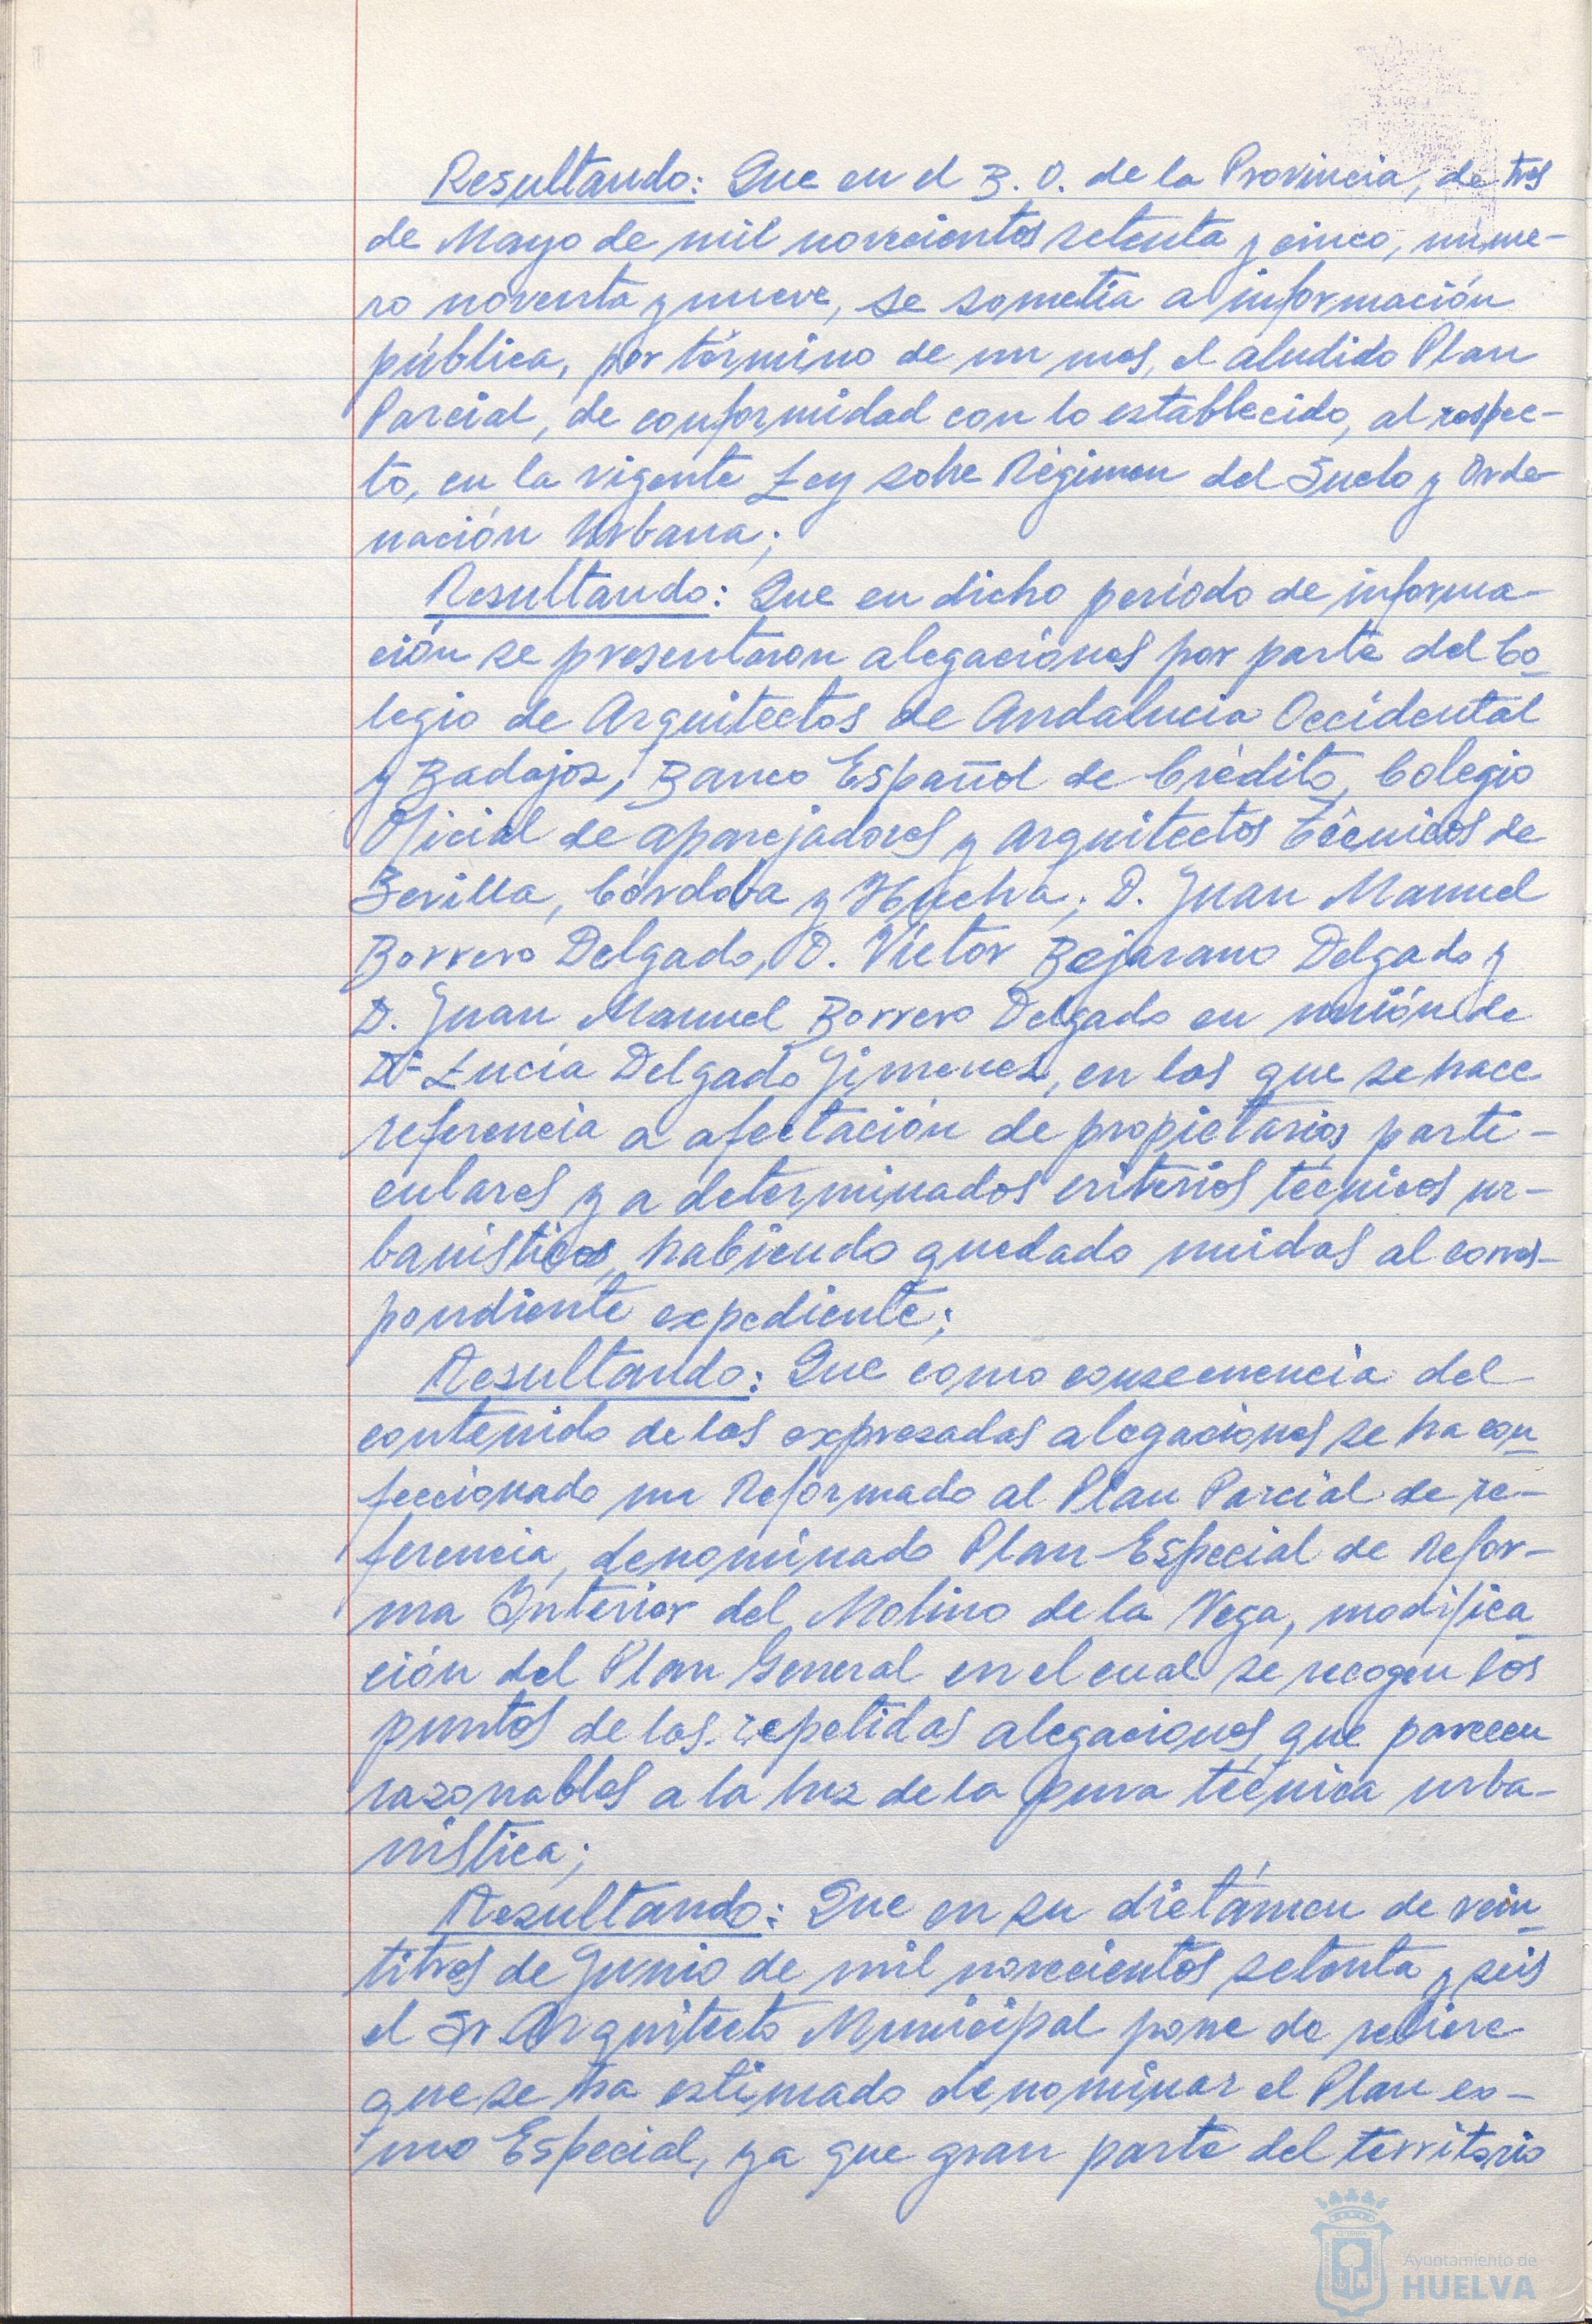 Resultando: Que en el B. O. de la Provincia, de tres
de Mayo de mil novecientos setenta y cinco, núme-
ro noventa y nueve, se sometía a información
pública, por término de un mes, el aludido Plan
Parcial, de conformidad con lo establecido, al respec-
to, en la vigente Ley sobre Régimen del Suelo y Orde-
nación Urbana;
Resultando: Que en dicho período de informa-
ción se presentaron alegaciones por parte del Co-
legio de Arquitectos de Andalucía Occidental
y Badajoz, Banco Español de Crédito, Colegio
Oficial de Aparejadores y Arquitectos Técnicos de
Sevilla, Córdoba y Huelva; D. Juan Manuel
Borrero Delgado, D. Víctor Bejarano Delgado y
D. Juan Manuel Borrero Delgado en unión de
Dª Lucía Delgado Jimenez, en las que se hace
referencia a afectación de propietarios parti-
culares y a determinados criterios técnicos ur-
banísticos, habiendo quedado unidas al corres-
pondiente expediente;
Resultando: Que como consecuencia del
contenido de las expresadas alegaciones se ha con-
feccionado un Reformado al Plan Parcial de re-
ferencia, denominado Plan Especial de Refor-
ma Interior del Molino de la Vega, modifica-
ción del Plan General en el cual se recogen los
puntos de las repetidas alegaciones que parecen
razonables a la luz de la pura técnica urba-
nística;
Resultando: Que en su dictámen de vein-
titres de Junio de mil novecientos setenta y seis
el Sr Arquitecto Municipal pone de relieve
que se ha estimado denominar el Plan co-
mo Especial, ya que gran parte del territorio
Ayuntamiento de
HUELVA